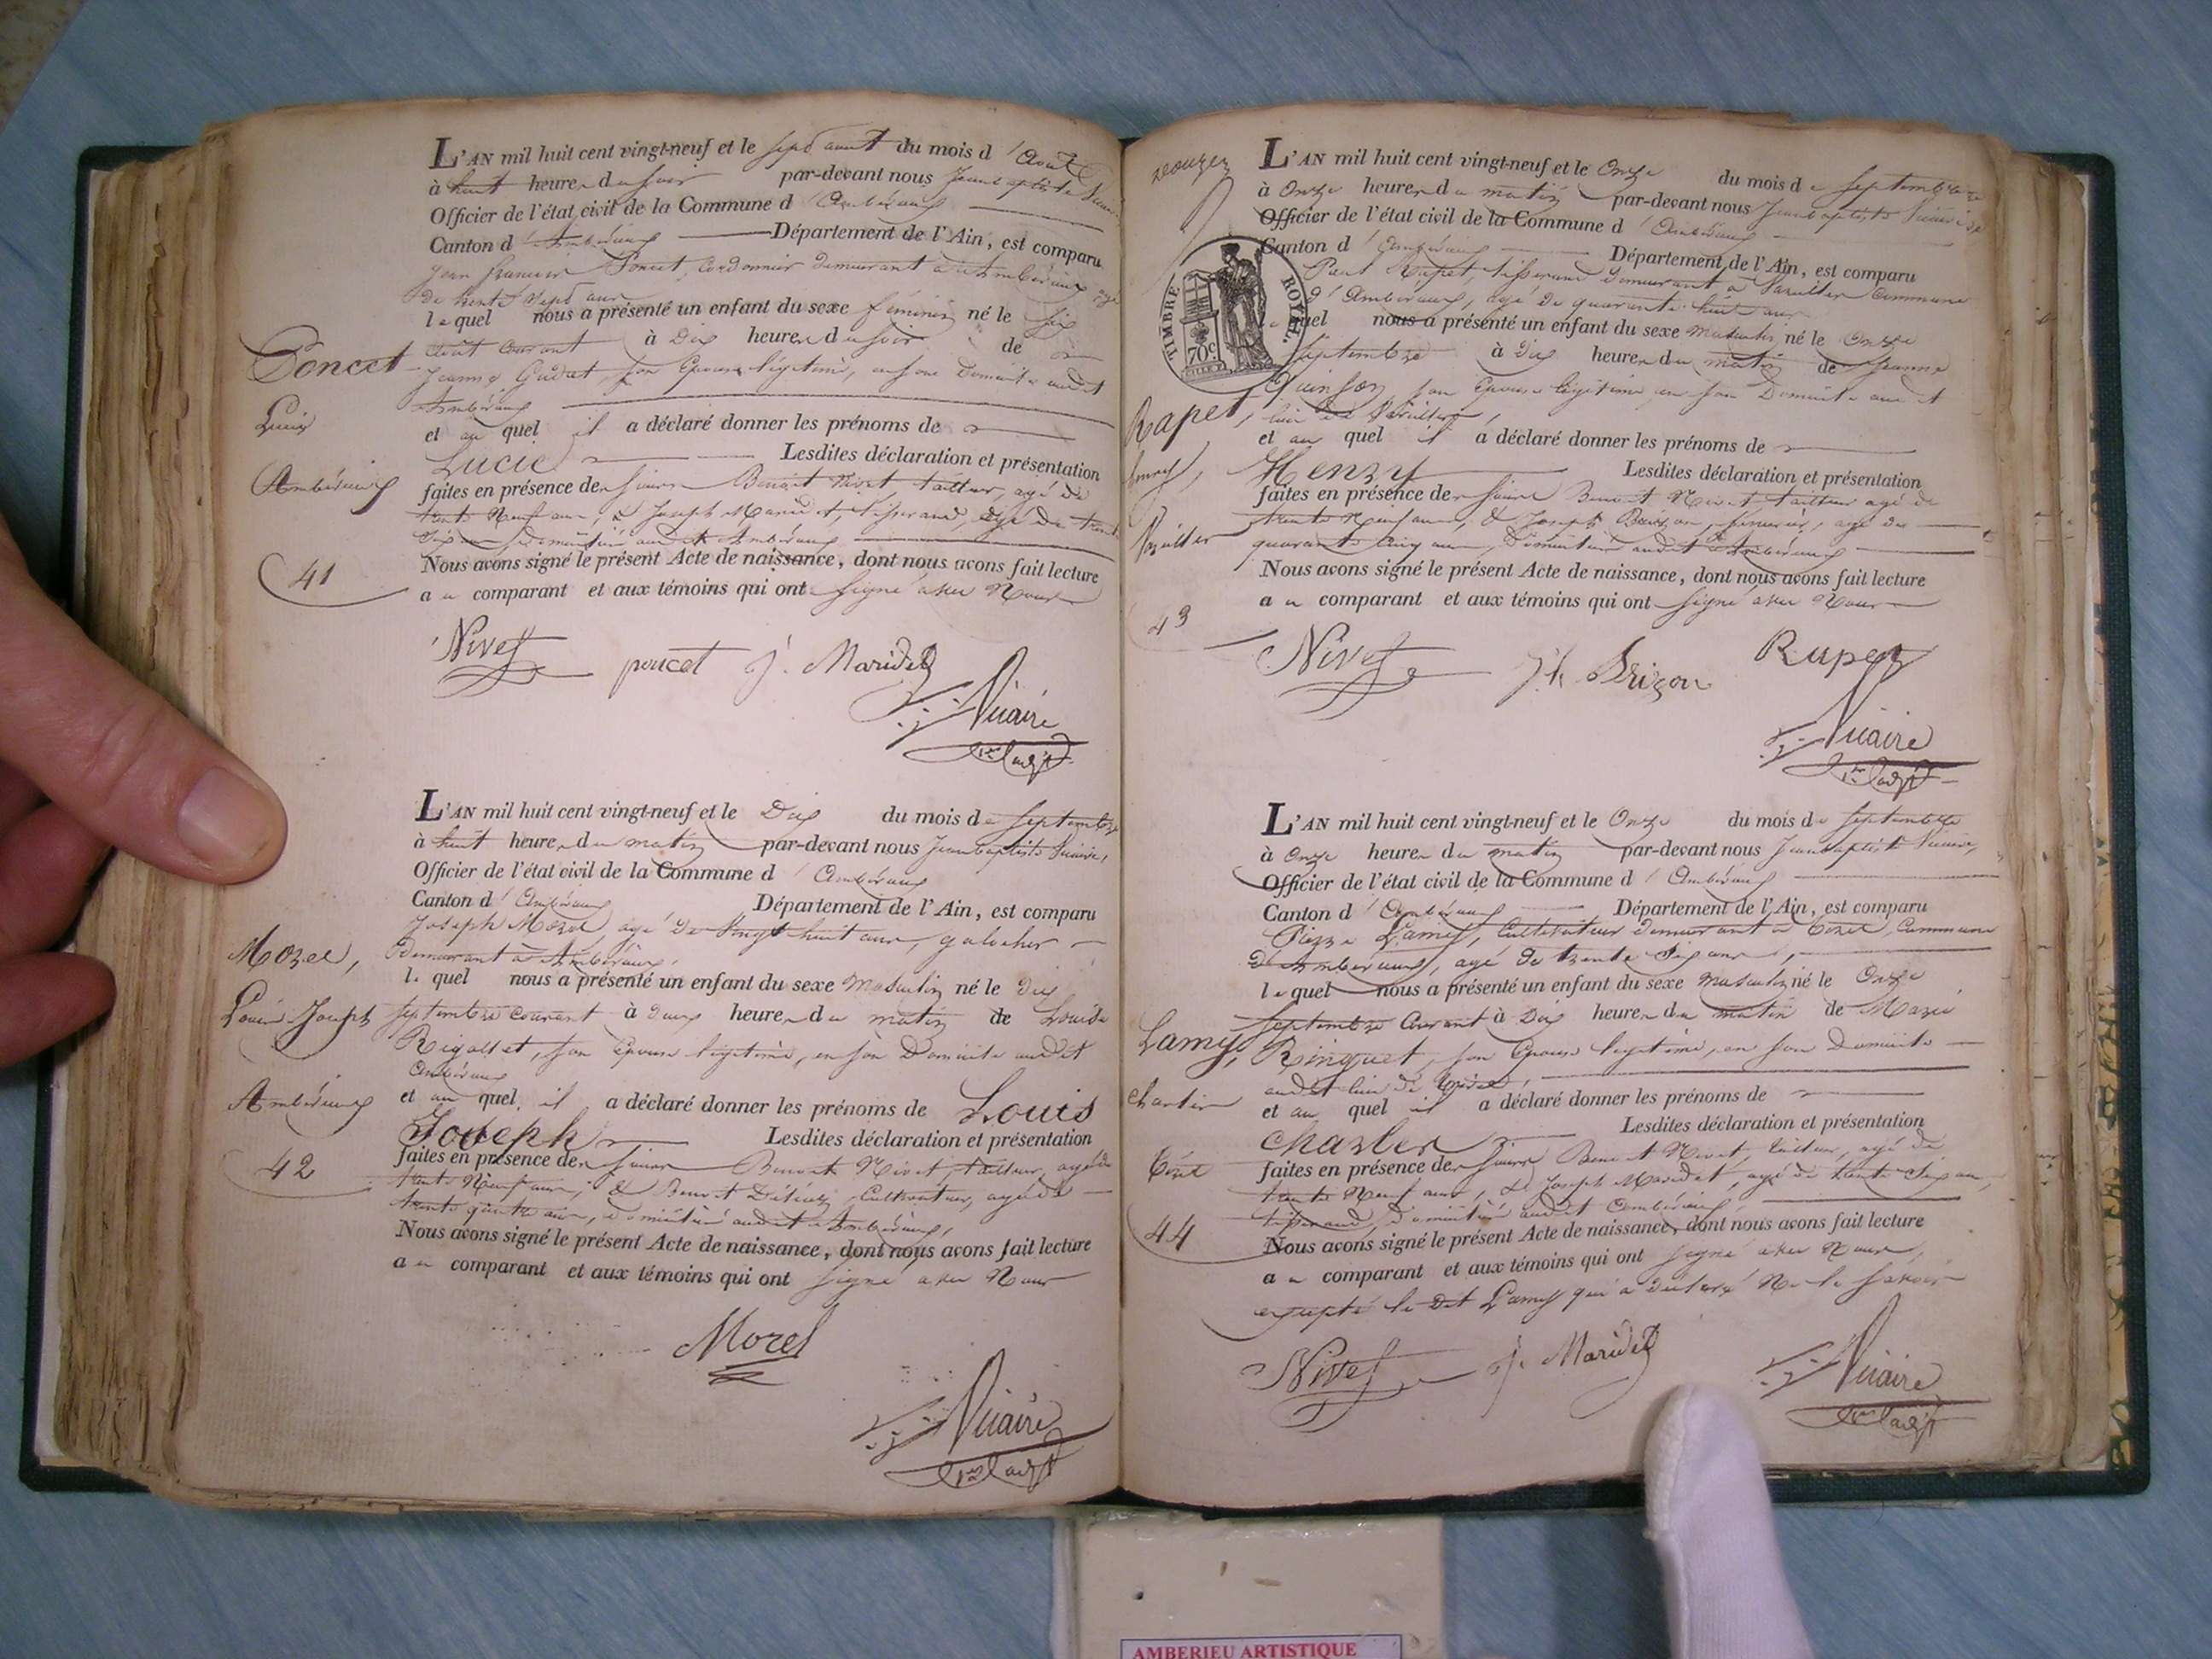 L'AN mil huit cent vingt-neuf et le sept aout du mois d'Août
à huit heures du soir par-devant nous Jean baptiste
Officier de l'état civil de la Commune d'Ambérieux
Canton d'Ambérieux Département de l'Ain, est comparu
Jean francois Poncet, Cordonnier demeurant à Ambérieux agé
de trente sept ans
lequel nous a présenté un enfant du sexe féminin né le six
Août courant à Dix heures du soir de
Jeanne Gudet, son Epouse légitime, en son Domicile audit
Ambérieux
et au quel il a déclaré donner les prénoms de
Lucie Lesdites déclaration et présentation
faites en présence des sieurs Benoit Nivet tailleur, agé de
trente Neuf ans, & Joseph Maridet, tisserand, agé de trente
Six ans domiciliés audit Ambérieux
Nous avons signé le présent Acte de naissance, dont nous avons fait lecture
au comparant et aux témoins qui ont signé avec Nous
Poncet
Lucie
Ambérieux
41
Nivet poncet J. Maridet
Vicaire
L'AN mil huit cent vingt-neuf et le Dix du mois de Septembre
à huit heures du matin par-devant nous Jean baptiste Vicaire,
Officier de l'état civil de la Commune d'Ambérieux
Canton d'Ambérieux Département de l'Ain, est comparu
Joseph Morel, agé de Vingt huit ans, galocher
Demeurant à Ambérieux,
lequel nous a présenté un enfant du sexe Masculin né le Dix
Septembre courant à Deux heures du matin de Louise
Rigollet, son Epouse légitime, en son Domicile audit
Ambérieux
et au quel il a déclaré donner les prénoms de Louis
Joseph Lesdites déclaration et présentation
faites en présence des sieurs Benoit Nivet, tailleur, agé de
trente Neuf ans, & Benoit Cultivateur, agé de
trente quatre ans, domiciliés audit Ambérieux,
Nous avons signé le présent Acte de naissance, dont nous avons fait lecture
au comparant et aux témoins qui ont signé avec Nous
Morel,
Louis Joseph
Ambérieux
42
Morel
Vicaire
L'AN mil huit cent vingt-neuf et le Onze du mois de Septembre
à Onze heures du matin par-devant nous Jean baptiste Vicaire
Officier de l'état civil de la Commune d'Ambérieux
Canton d'Ambérieux Département de l'Ain, est comparu
Rapet, tisserand Demeurant à Commune
d'Ambérieux, agé de quarante huit ans
lequel nous a présenté un enfant du sexe Masculin né le Onze
Septembre à Dix heures du matin de Jeanne
Quinson, son Epouse légitime, en son Domicile audit
lieu de
et au quel il a déclaré donner les prénoms de
Henry Lesdites déclaration et présentation
faites en présence des sieurs Benoit Nivet tailleur agé de
trente Neuf ans, & Joseph agé de
quarante Cinq ans, Domiciliés audit Ambérieux
Nous avons signé le présent Acte de naissance, dont nous avons fait lecture
au comparant et aux témoins qui ont signé avec Nous
TIMBRE ROYAL
70c
Rapet,
henry,
43
Nivet Jh Brizon Rapet
Vicaire
L'AN mil huit cent vingt-neuf et le Onze du mois de Septembre
à Onze heures du matin par-devant nous Jean baptiste Vicaire,
Officier de l'état civil de la Commune d'Ambérieux
Canton d'Ambérieux Département de l'Ain, est comparu
Pierre Lamy, Cultivateur Demeurant à Commune
d'Ambérieux, agé de trente Six ans,
lequel nous a présenté un enfant du sexe Masculin né le Onze
Septembre Courant à Dix heures du matin de Marie
Ringuet, son Epouse légitime, en son Domicile
audit lieu de
et au quel il a déclaré donner les prénoms de
Charles Lesdites déclaration et présentation
faites en présence des sieurs Benoit Nivet, tailleur, agé de
trente Neuf ans, & Joseph Maridet, agé de trente Six ans,
tisserand, Domiciliés audit Ambérieux,
Nous avons signé le présent Acte de naissance, dont nous avons fait lecture
au comparant et aux témoins qui ont signé avec Nous,
excepté le Dit Lamy qui a Déclaré Ne le savoir
Lamy,
Charles
44
Nivet J. Maridet
Vicaire
AMBERIEU ARTISTIQUE